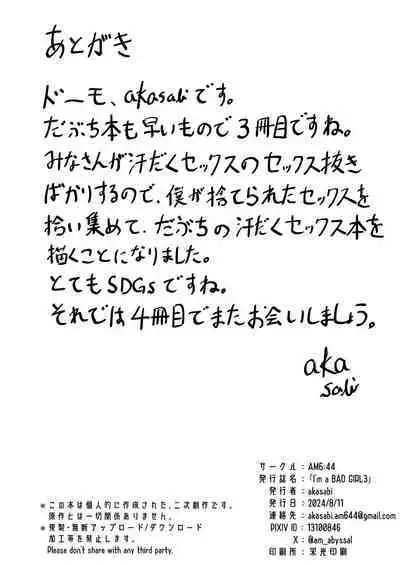 あとがき
ドーモ、akasabiです。
だぶち本も早いもので3冊目ですね。
みなさんが汗だくセックスのセックス抜き
ばかりするので、僕が捨てられたセックスを
拾い集めて、だぶちの汗だくセックス本を
描くことになりました。
とてもSDGsですね。
それでは4冊目でまたお会いしましょう。
aka
sabi
サークル：AM6:44
発行誌名：「I'm a BAD GIRL3」
発行者：akasabi
発行日：2024/8/11
連絡先：akasabi.am644@gmail.com
PIXIV ID：13100846
X：@am_abyssal
印刷所：栄光印刷
※この本は個人的に作成された、二次創作です。
原作とは一切関係ありません。
※複製・無断アップロード/ダウンロード
加工等を禁止します。
Please don't share with any third party.